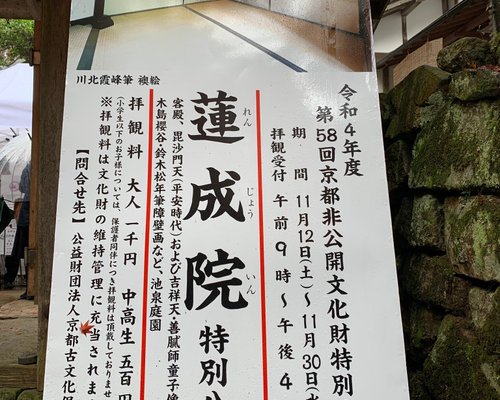 川北霞峰筆 襖絵
令和4年度
第58回京都非公開文化財特別
期 間 11月12日(土)〜11月30日(水
拝観受付 午前9時〜午後4
蓮成院特別
れんじょういん
客殿、毘沙門天(平安時代)および吉祥天・善膩師童子像
木島櫻谷・鈴木松年筆障壁画など、池泉庭園
拝観料 大人 一千円 中高生 五百円
(小学生以下のお子様については、保護者同伴につき拝観料は頂戴しておりませ
※拝観料は文化財の維持管理に充当されま
【問合せ先】公益財団法人京都古文化保